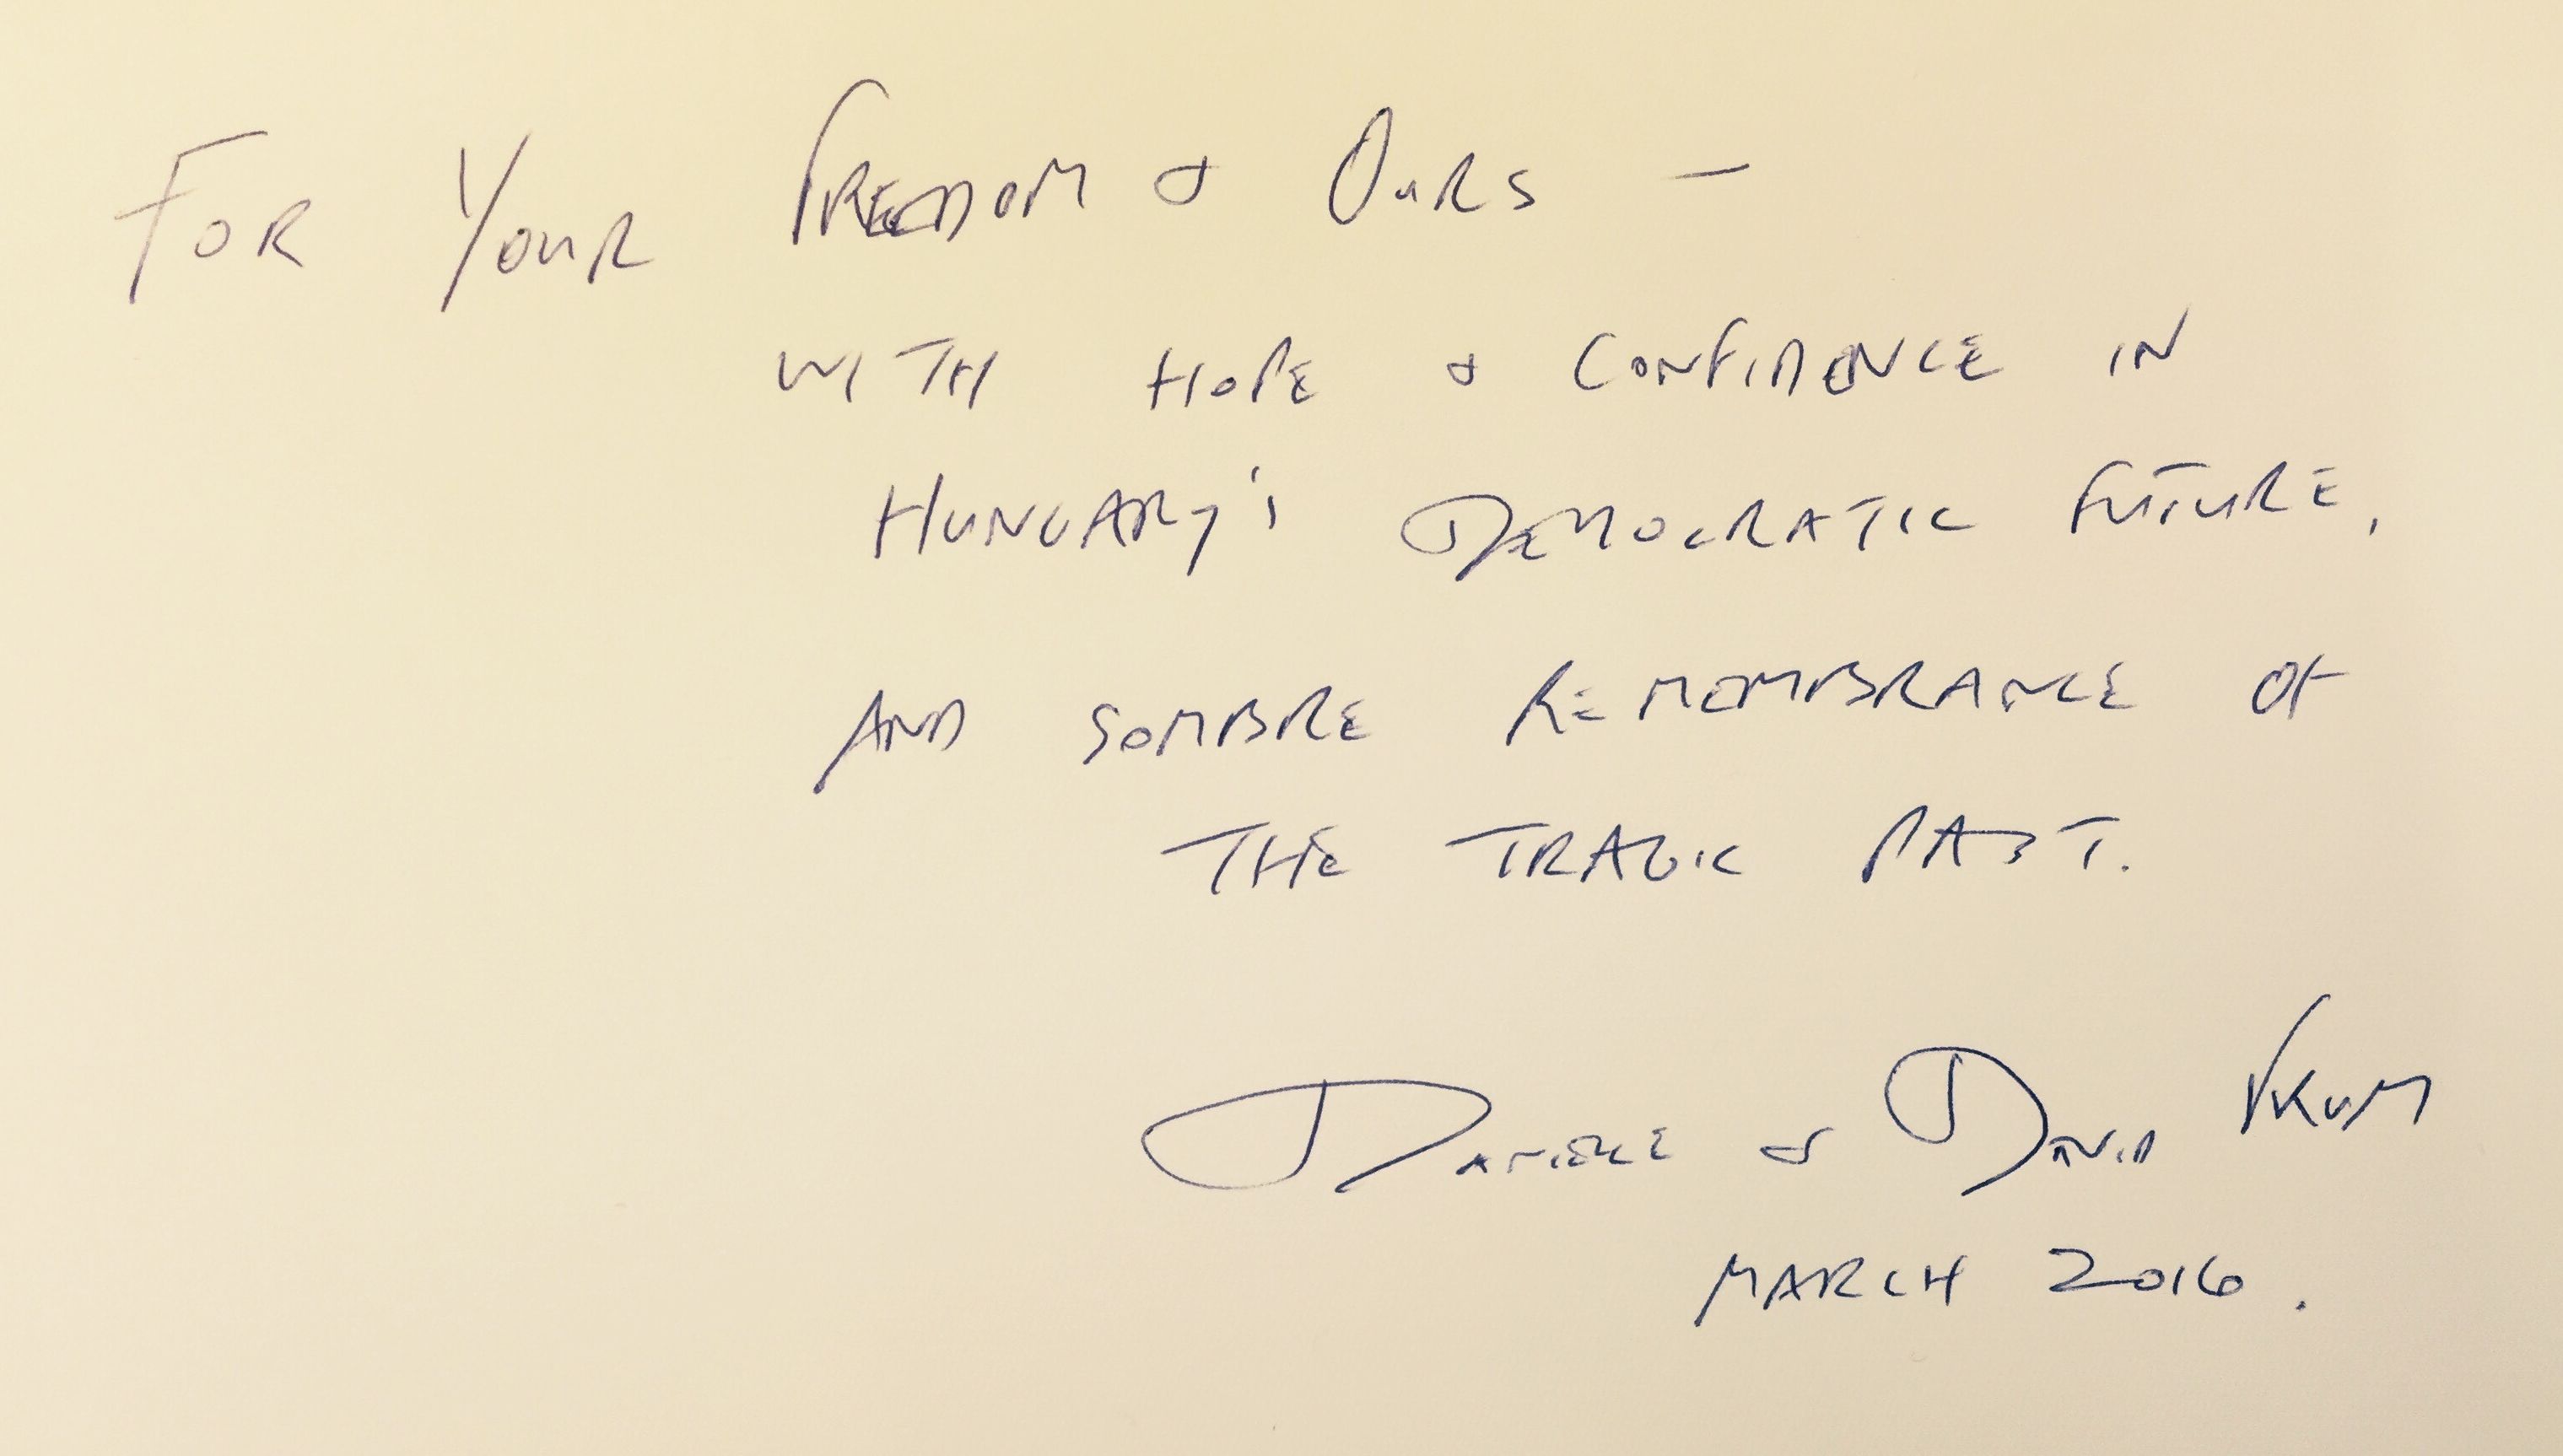 FOR YOUR FREEDOM & OURS —
WITH HOPE & CONFIDENCE IN
HUNGARY'S DEMOCRATIC FUTURE,
AND SOMBRE REMEMBRANCE OF
THE TRAGIC PAST.
DANIELLE & DAVID FRUM
MARCH 2016.